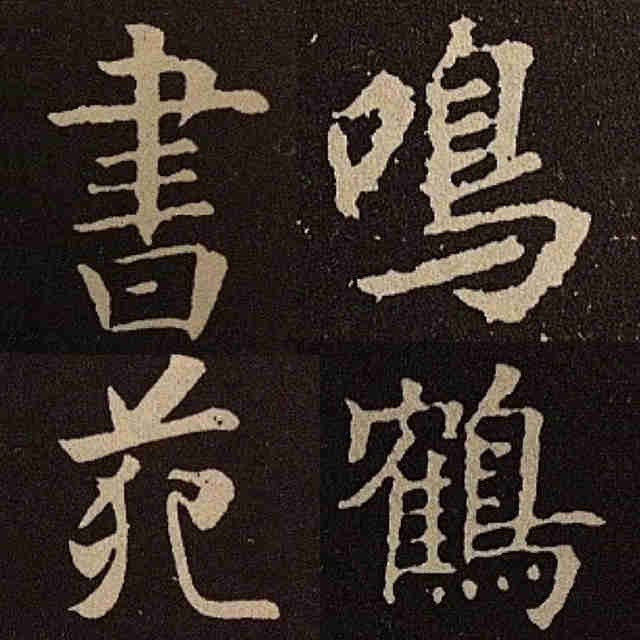 鳴鶴
書苑